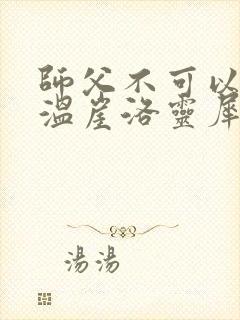 師父不可以
溫崖洛靈犀
湯湯